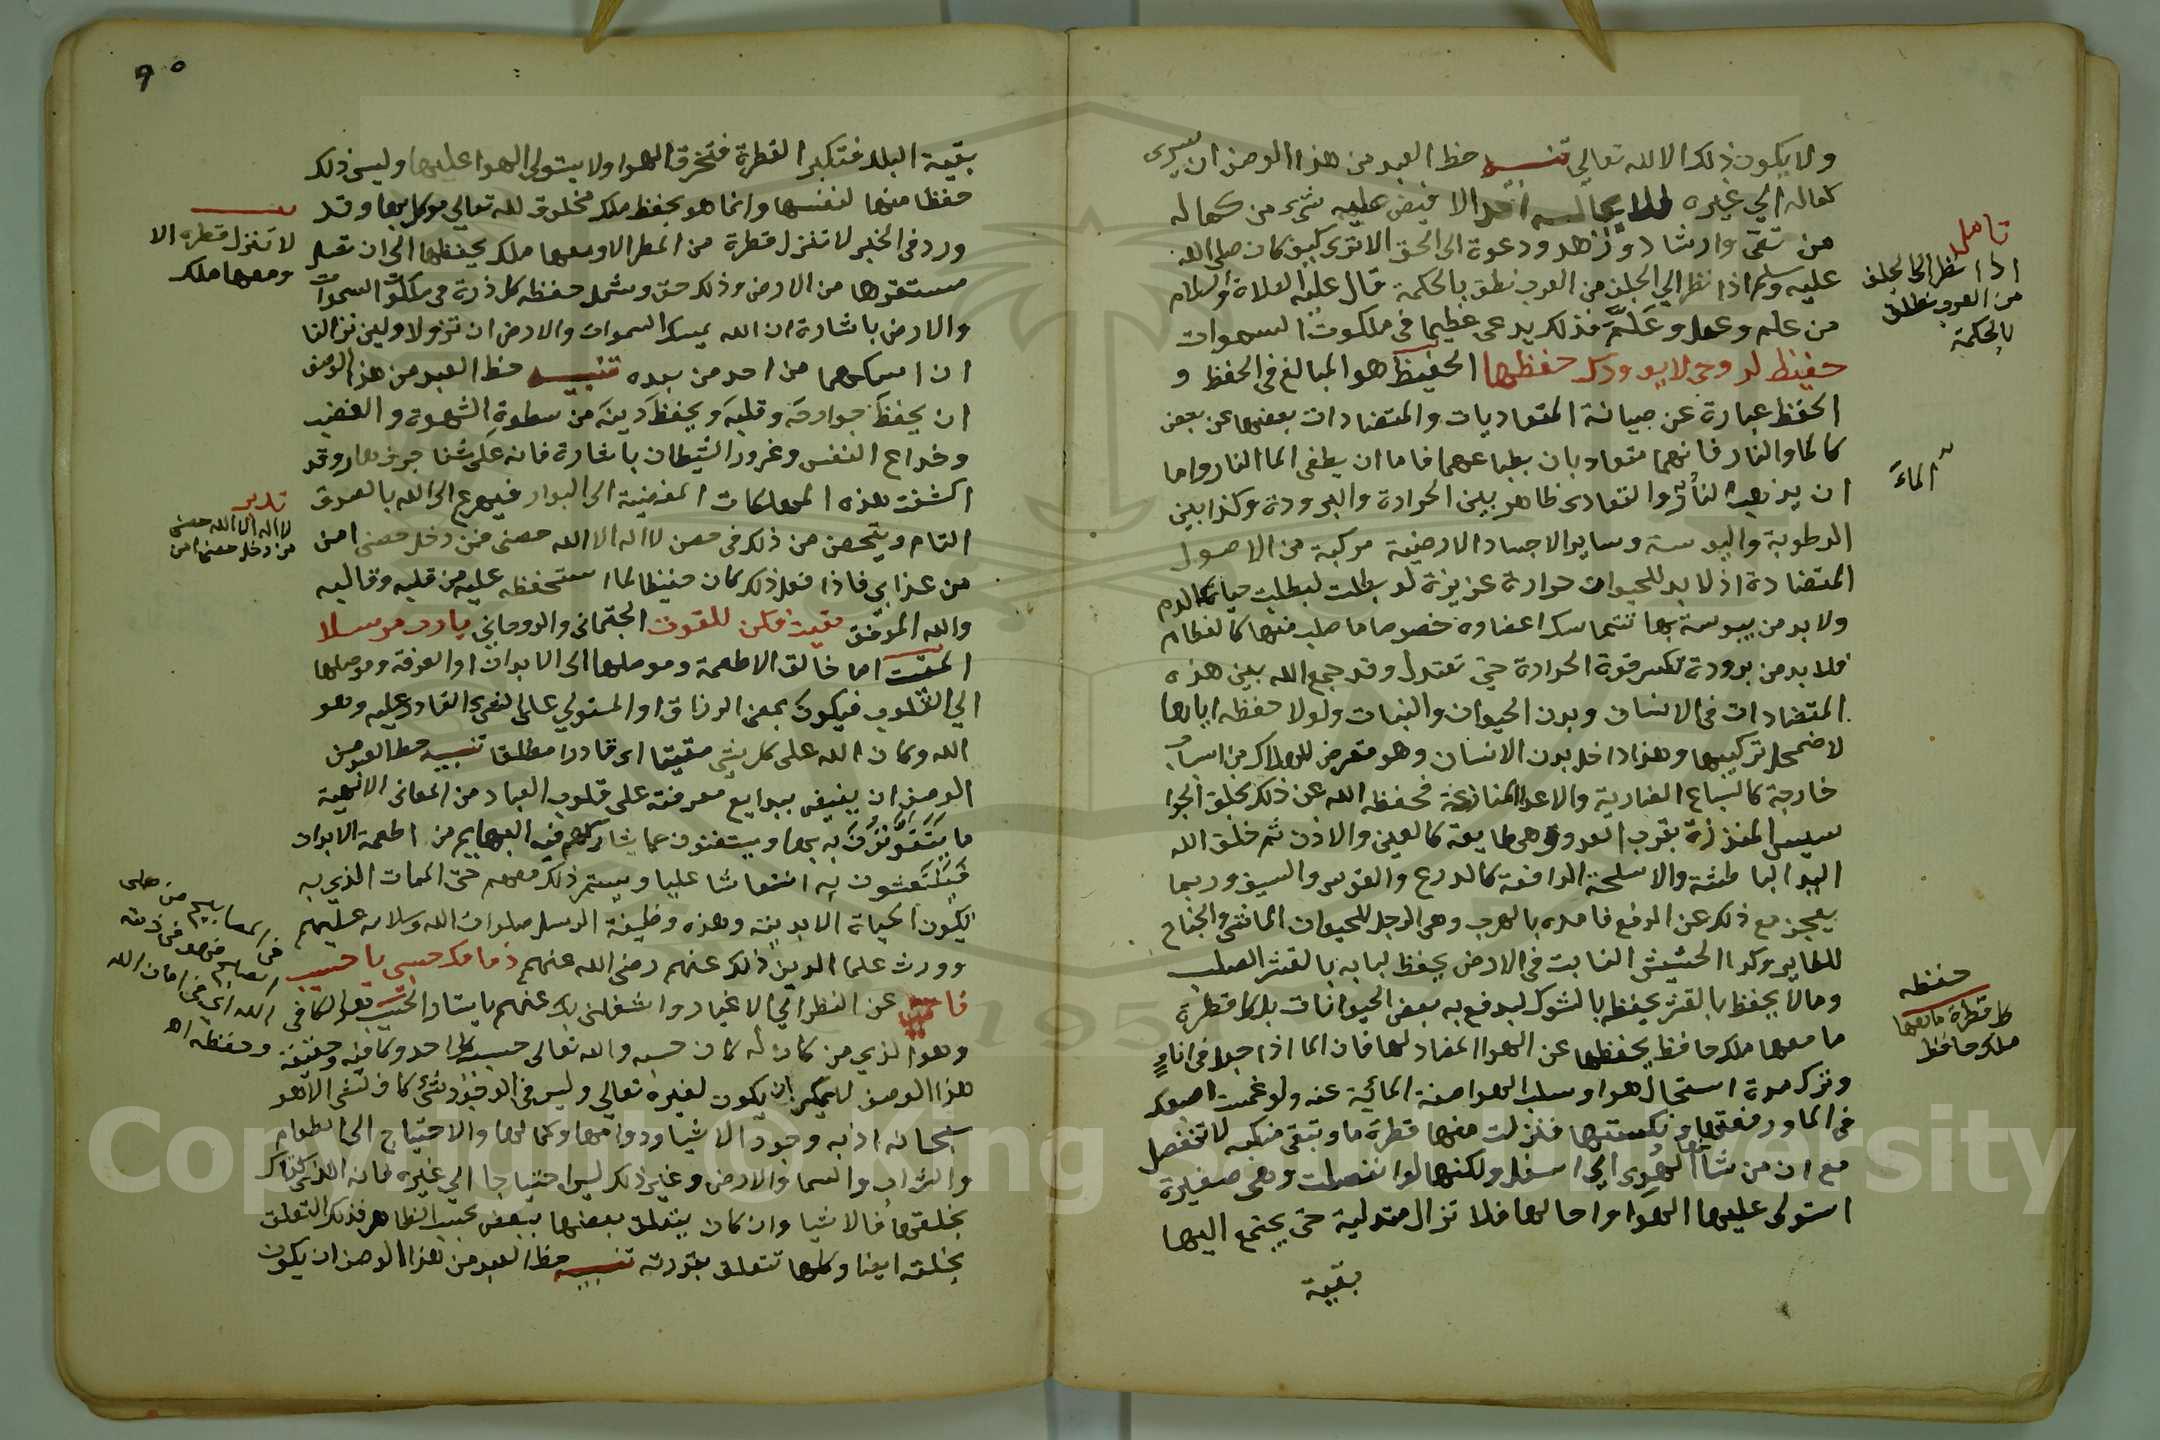 ولا يكون ذلك الا لله تعالي تنبيه حظ العبد من هذا الوصف ان يسرى
كماله الي غيره فلا يجالسه احد الا فيض عليه شيء من كماله
من تقي وارشاد وزهد ودعوة الى الحق الا تري كيف كان صلي الله
عليه وسلم اذا نظر الي الجلف من العرب نطق بالحكمة قال عليه الصلاة والسلام
من علم وعمل وعلم فذلك يدعى عظيما في ملكوت السموات
حفيظ لروحي لا يودك حفظها الحفيظ هو المبالغ في الحفظ و
الحفظ عبارة عن صيانة المتعاديات والمتضادات بعضها عن بعض
كالما والنار فانهما متعاديان بطباعهما فاما ان يطفي الما النار واما
ان يذهب النار والتعادى ظاهر بين الحرارة والبرودة وكذا بين
الرطوبة واليبوسة وساير الاجساد الارضية مركبة من الاصول
المتضادة اذ لا بد للحيوان من حرارة غريزة لو بطلت لبطلت حياته كالدم
ولا بد من يبوسة بها تتماسك اعضاوه خصوصا ما صلب منها كالعظام
فلا بد من برودة تكسر قوة الحرارة حتي تعتدل وقد جمع الله بين هذه
المتضادات في الانسان وبدن الحيوان والنبات ولولا حفظه اياها
لاضمحل تركيبها وهذا داخل بدن الانسان وهو متعرض للهلاك من اسباب
خارجة كالسباع الضارية والاعدا المنازعة فحفظه الله عن ذلك بخلق الجوا
سيس المنذرة بقرب العدو وهي طايعة كالعين والاذن ثم خلق الله
اليد الباطشة والاسلحة الدافعة كالدرع والقوس والسيف وربما
يعجز مع ذلك عن الدفع فامده بالهرب وهي الرجل للحيوان الماشي والجناح
للطاير وكذا الحشيش النابت في الارض يحفظ لبابه بالقشر الصلب
وما لا يحفظ بالقشر يحفظه بالشوك ليدفع به بعض الحيوانات بل كل قطرة
ما معها ملك حافظ يحفظها عن الهوا المضاد لها فان الما اذا جعل في اناءٍ
وترك مدة استحال هوا وسلب الهوا صفة المائية عنه ولو غمست اصبعك
في الما ورفعتها ونكستها فنزلت منها قطرة ما وتبقي منكسة لا تنفصل
مع ان من شأنها الهُوى الي اسفل ولكنها لو انفصلت وهي صغيرة
استولى عليها الهوا واحالها فلا تزال متدلية حتي يجتمع اليها
بقية
تامل
اذا نظر الى الجلف
من العرب نطق
بالحكمة
الماءَ
حفظه
كل قطرة ما معها
ملك حافظ
٩٠
بقية البلل فتكبر القطرة فتخرق الهوا ولا يستولي الهوا عليها وليس ذلك
حفظا منها لنفسها وانما هو بحفظ ملك مخلوق لله تعالي موكل بها وقد
ورد في الخبر لا تنزل قطرة من المطر الا ومعها ملك يحفظها الى ان تصل
مستقرها من الارض وذلك حق وشمل حفظه كل ذرة في ملكوت السموات
والارض باشارة ان الله يمسك السموات والارض ان تزولا ولين زالتا
ان امسكهما من احد من بعده تنبيه حظ العبد من هذا الوصف
ان يحفظَ جوارحَه وقلبَه ويحفظ دينَه من سطوة الشهوة والغضب
وخداع النفس وغرور الشيطان باشارة فانه على شفا جرف هار وقد
اكتنفت هذه المهلكات المفضية الى البوار فيهرع الى الله بالصدق
التام ويتحصن من ذلك في حصن لا اله الا الله حصني فمن دخل حصني امن
من عذابي فاذا فعل ذلك كان حفيظا لما استحفظه عليه من قلبه وقالبه
والله الموفق مقيت فكن للقوت الجثماني والروحاني يارب مرسلا
المقيت اما خالق الاطعمة وموصلها الى الابدان او المعرفة وموصلها
الي القلوب فيكون بمعني الرزاق او المستولي على الشيء القادر عليه وهو
الله وكان الله على كل شي مقيتا اى قادرا مطلقا تنبيه حظ العبد من
الوصف ان يفيض ببدايع معرفته على قلوب العباد من المعاني الالهية
ما يتقوتون به بها ويستغنون عما يشاركهم فيه البهايم من اطعمة الابدان
فينتعشون به انتعاشا عليا ويستمر ذلك معهم حتى الممات الذي به
يكون الحياة الابدية وهذه وظيفة الرسل صلوات الله وسلامه عليهم
وورث علما الدين ذلك عنهم رضي الله عنهم ذمامك حسبي يا حسيب
عن النظر الي الاغيار واشغلني بك عنهم يا ستار الحسيب هو الكافي
وهو الذي من كان له كان حسبه والله تعالى حسيب كل احد وكافيه وحقيقة
هذا الوصف لا يمكن ان يكون لغيره تعالي وليس في الوجود شئ كاف لشي الا هو
سبحانه اذ به وجود الاشيا ودوامها وكمالها والاحتياج الى الطعام
والشراب والسما والارض وغير ذلك ليس احتياجا الي غيره فانه الذي كفاك
بخلقها فالاشيا وان كان يتعلق بعضها ببعض بحسب الظاهر فذلك التعلق
بخلقه ايضا وكلها تتعلق بقدرته تنبيه حظ العبد من هذا الوصف ان يكون
لا تنزل قطرة الا
ومعها ملك
تدبر
لا اله الا الله حصني
من دخل حصني امن
من صلى
فهو في ذمة
الله اي في امان الله
وحفظه اه
Copyright © King Saud University
1957